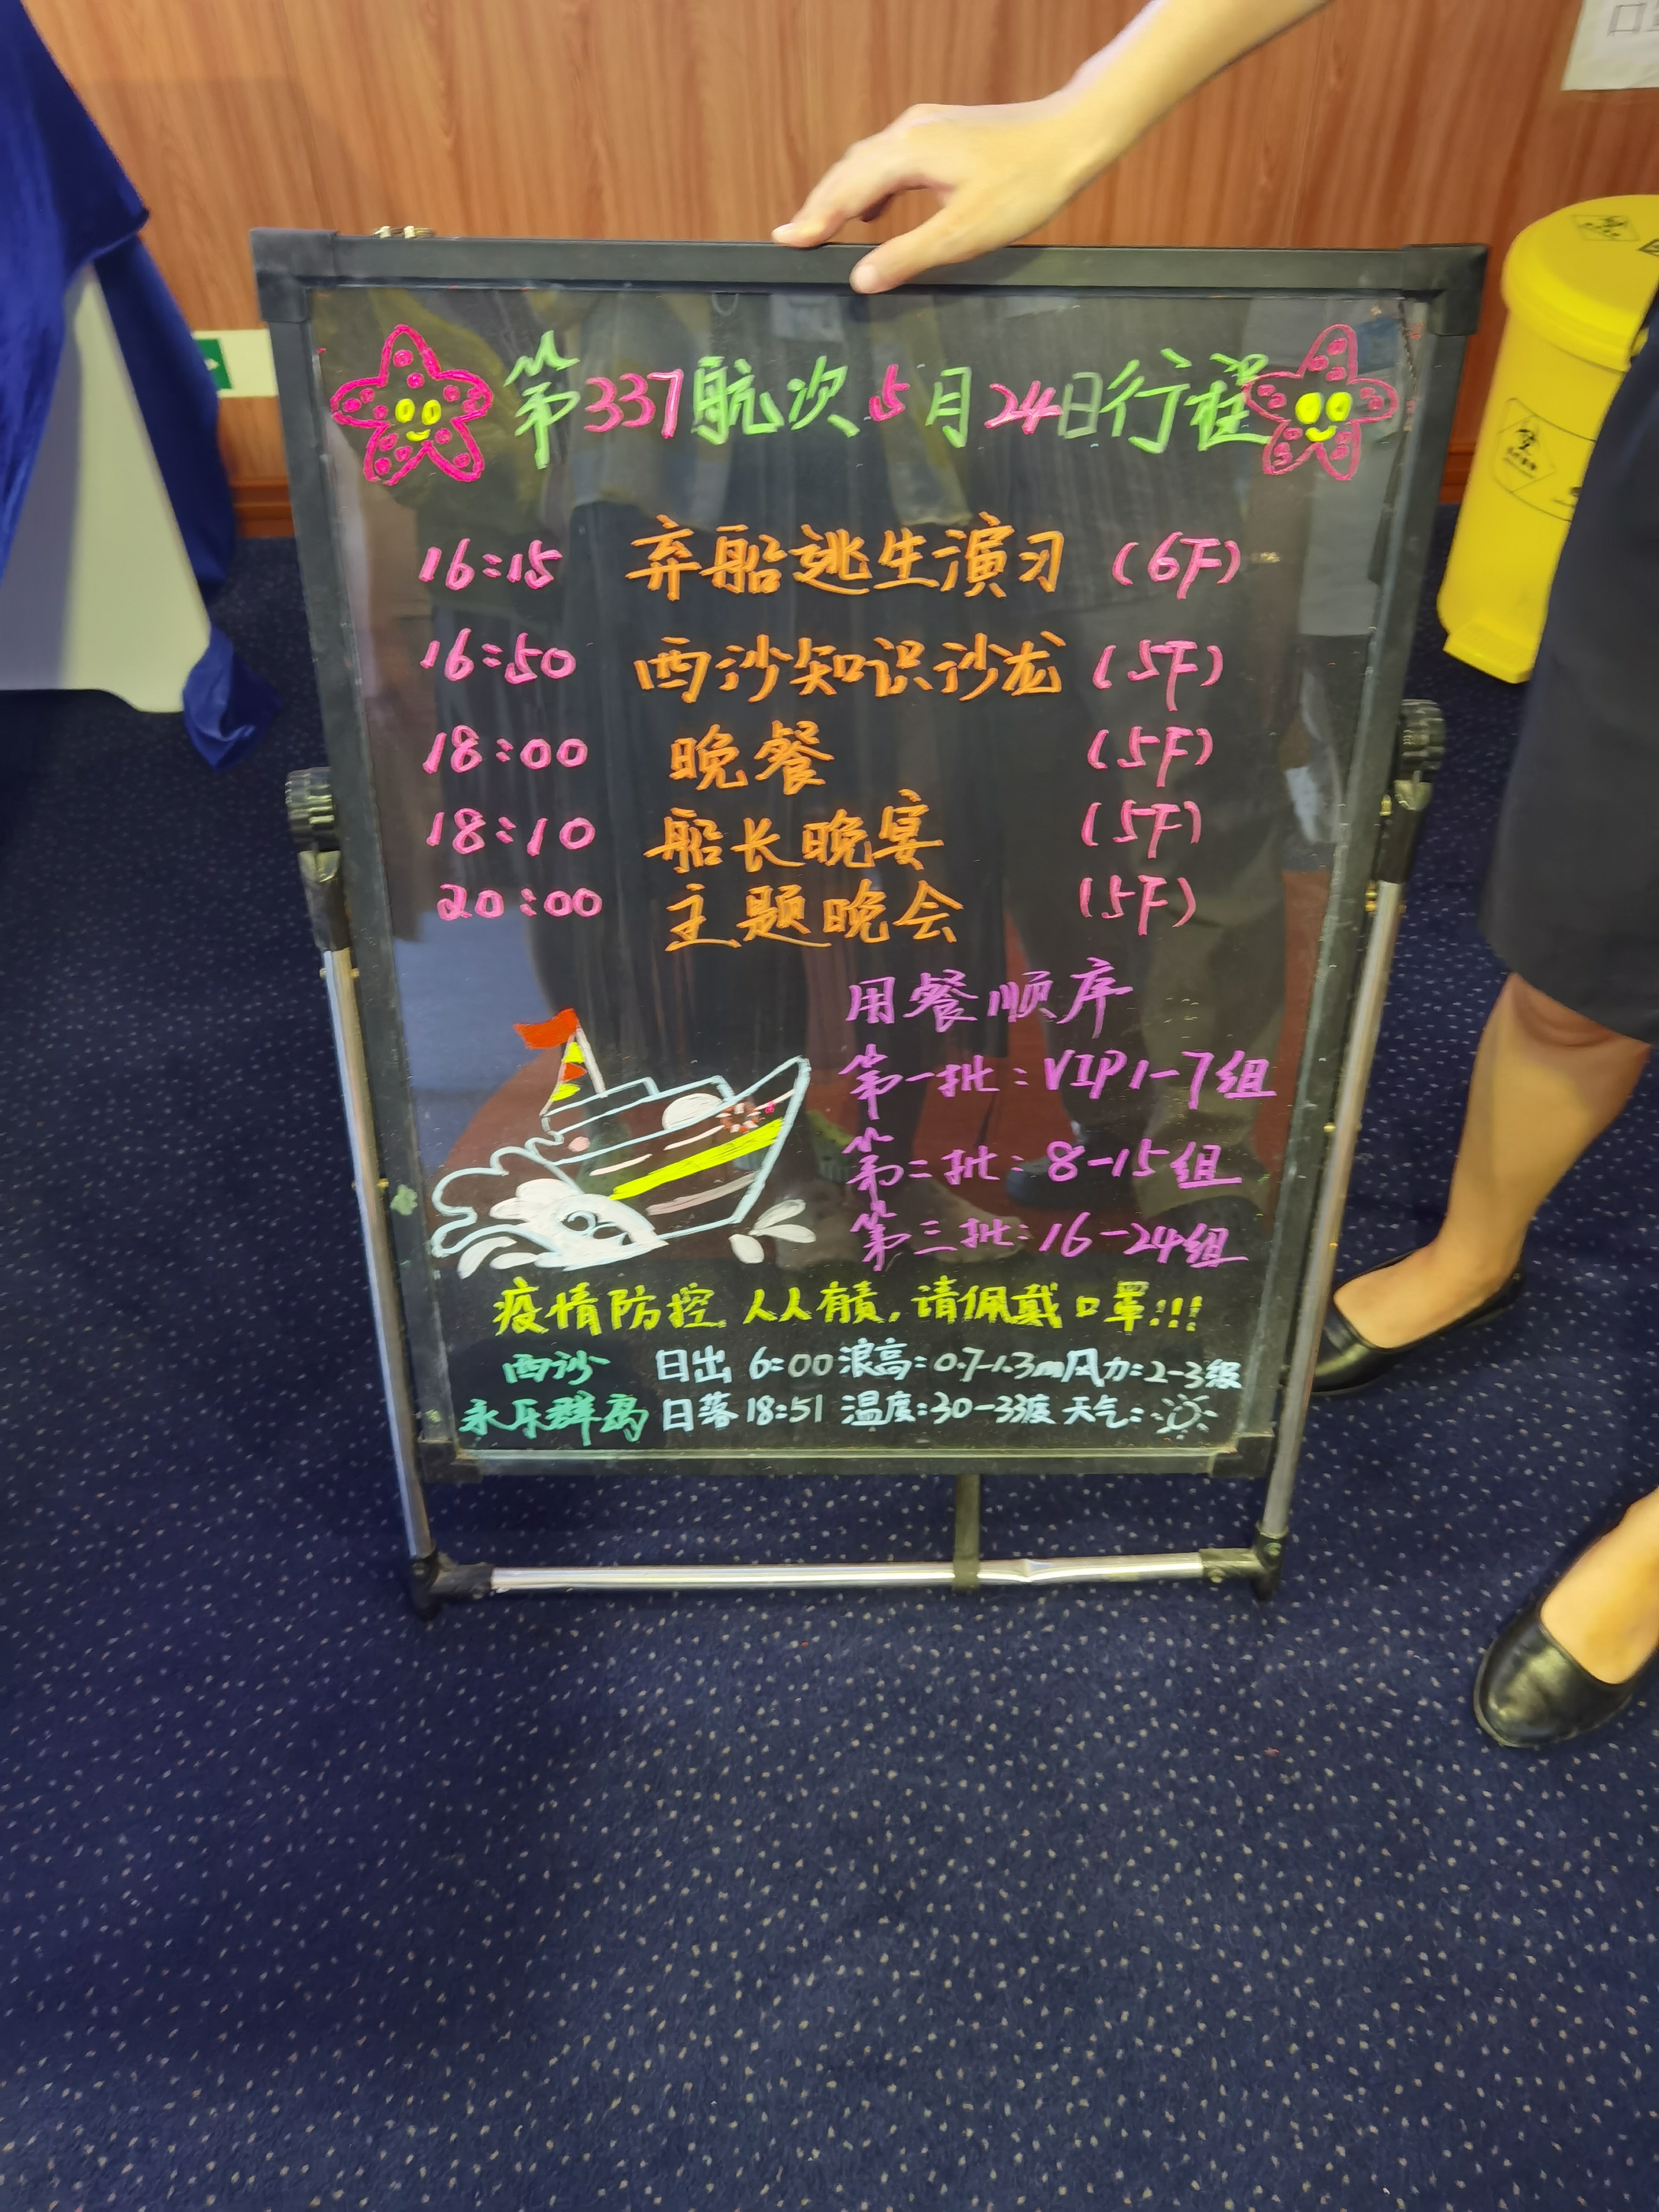 第337航次5月24日行程
16:15 弃船逃生演习 (6F)
16:50 西沙知识沙龙 (5F)
18:00 晚餐 (5F)
18:10 船长晚宴 (5F)
20:00 主题晚会 (5F)
用餐顺序
第一批:VIP1-7组
第二批:8-15组
第三批:16-24组
疫情防控,人人有责,请佩戴口罩!!!
西沙 日出 6:00 浪高:0.7-1.3m 风力:2-3级
永乐群岛 日落 18:51 温度:30-33度 天气: